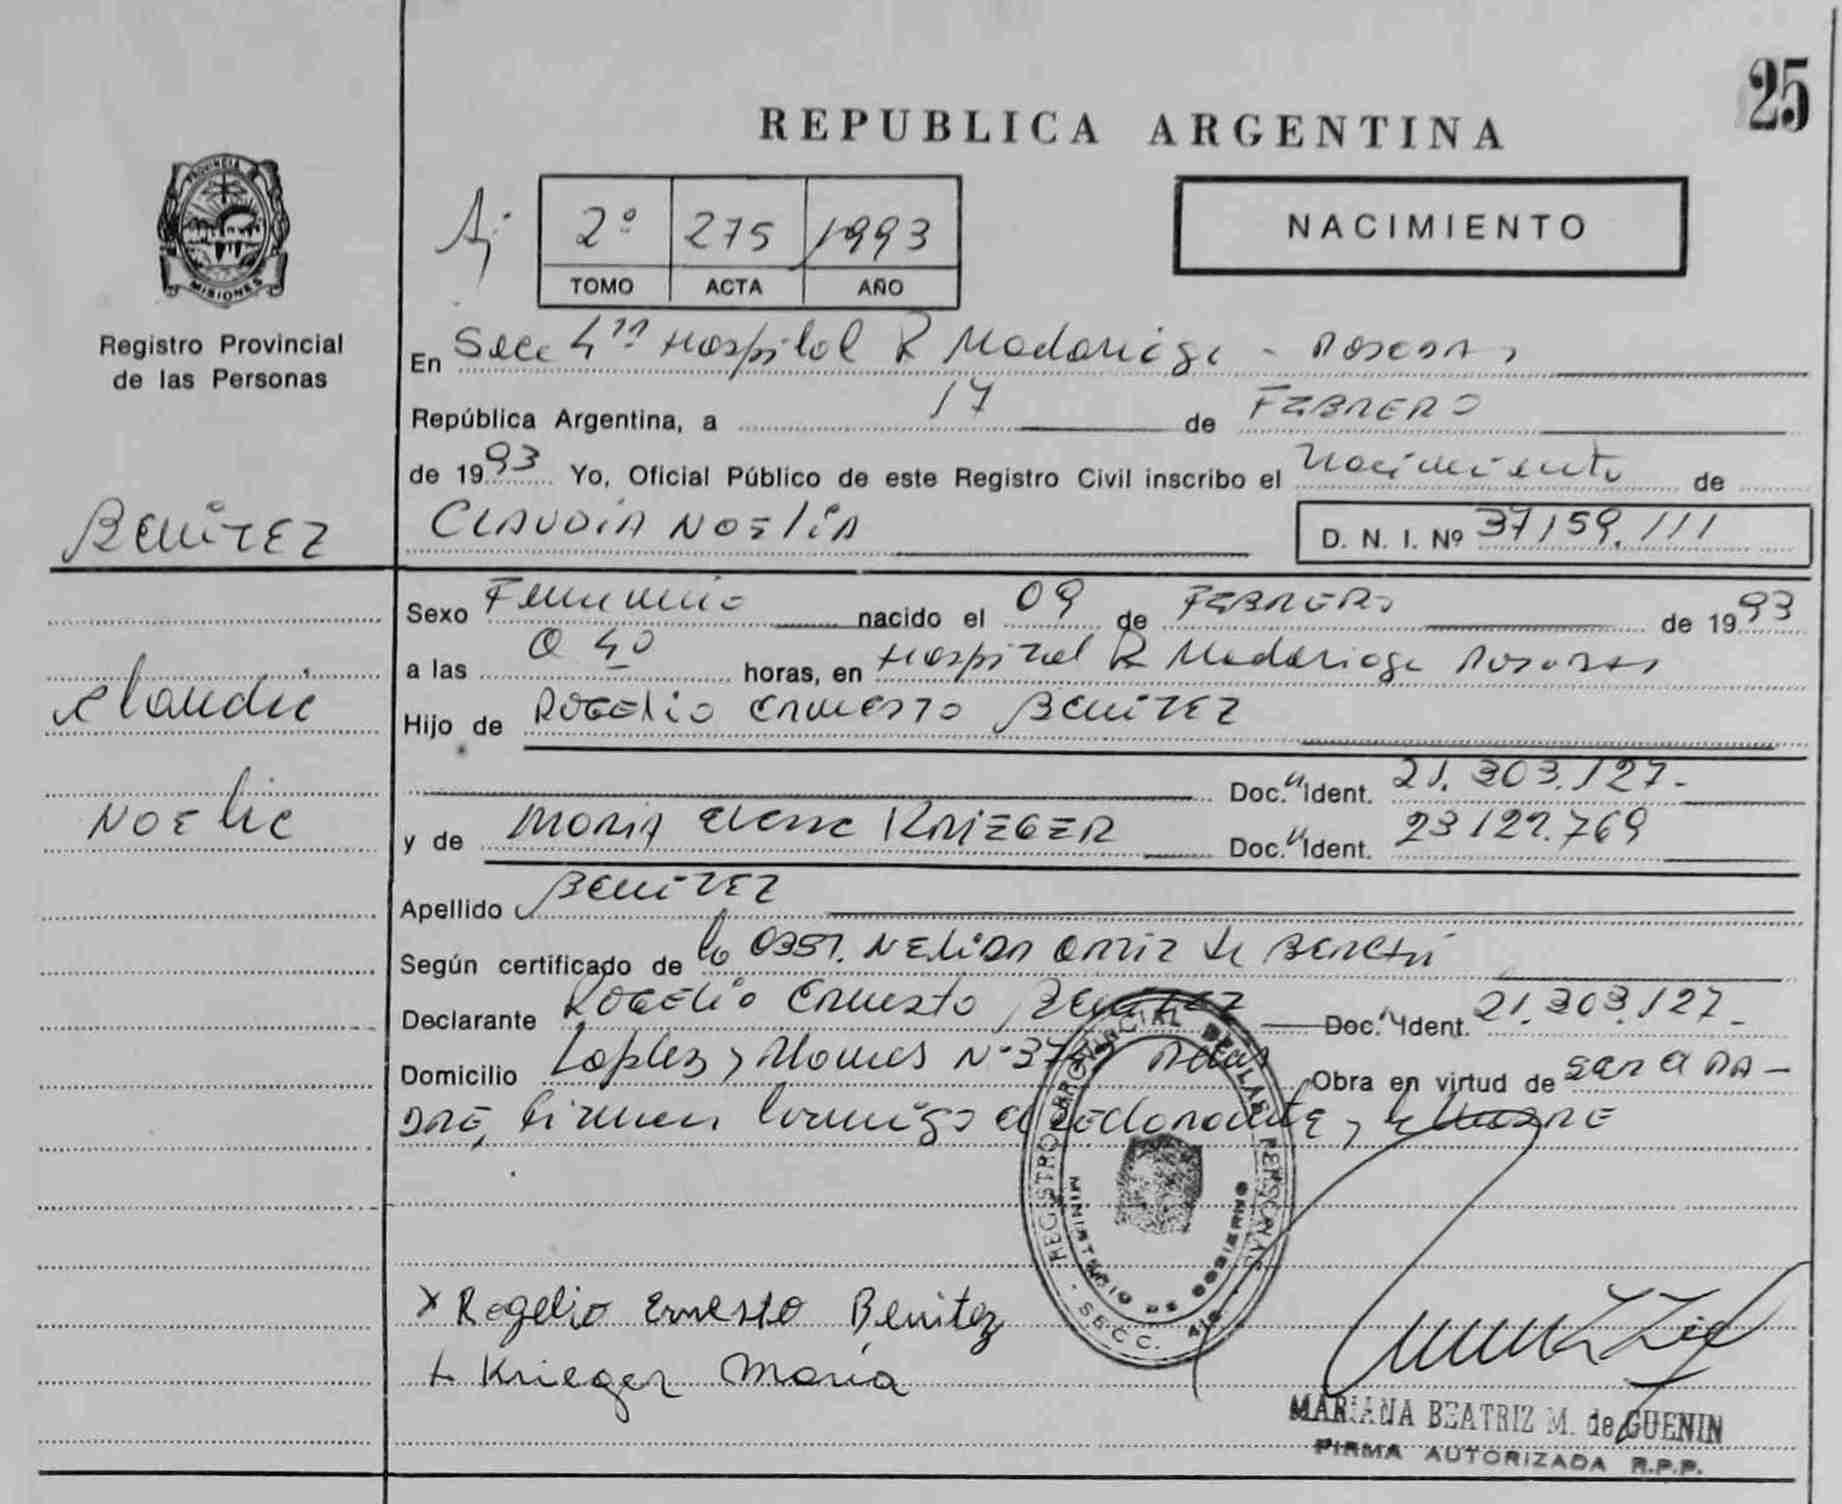 25
REPUBLICA ARGENTINA
PROVINCIA DE
MISIONES
Registro Provincial
de las Personas
2º 275 1993
TOMO ACTA AÑO
NACIMIENTO
En Secc 4ta Hospital R Madariaga - Posadas
República Argentina, a 17 de FEBRERO
de 1993 Yo, Oficial Público de este Registro Civil inscribo el Nacimiento de
BENITEZ
CLAUDIA NOELIA
D. N. I. Nº 37159.111
Sexo Femenino nacido el 09 de FEBRERO de 1993
a las 0 40 horas, en Hospital R Madariaga Posadas
Claudia
Hijo de ROGELIO ERNESTO BENITEZ
Doc. Ident. 21.303.127.-
NOELIA
y de MARIA ELENA KRIEGER Doc. Ident. 23122.769
Apellido BENITEZ
Según certificado de la OBST. NELIDA ORTIZ de
Declarante ROGELIO Ernesto BENITEZ Doc. Ident. 21.303.127.-
Domicilio Lopez y Planes Nº Obra en virtud de SER EL PA-
DRE, Firman conmigo el declarante y la MADRE
REGISTRO PROVINCIAL DE LAS PERSONAS
MINISTERIO DE GOBIERNO
- SECC. 4ta. -
x Rogelio Ernesto Benitez
+ Krieger María
MARIANA BEATRIZ M. de GUENIN
FIRMA AUTORIZADA R.P.P.